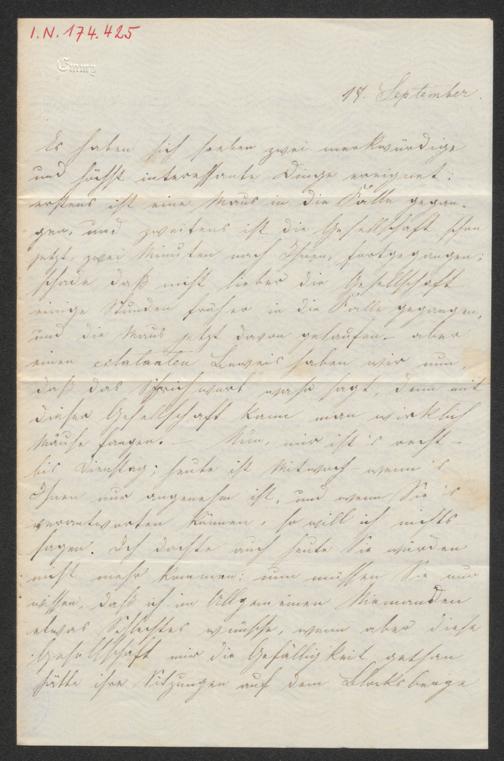 I.N. 174.425
Emmy
18. September.
Es haben sich soeben zwei merkwürdige
und höchst interessante Dinge ereignet:
erstens ist eine Maus in die Falle gegan-
gen, und zweitens ist die Gesellschaft schon
jetzt, zwei Minuten nach Ihnen, fortgegangen;
schade daß nicht lieber die Gesellschaft
einige Stunden früher in die Falle gegangen,
und die Maus jetzt davon gelaufen. aber
einen eclatanten Beweis haben wir nun,
daß das Sprichwort wahr sagt, denn mit
dieser Gesellschaft kann man wirklich
Mäuse fangen. — Nun, mir ist's recht —
bis Dienstag; heute ist Mittwoch — wenn's
Ihnen nur angenehm ist, und wenn Sie's
verantworten können, so will ich nichts
sagen. Ich dachte auch heute Sie würden
nicht mehr kommen; nun müssen Sie nur
wissen, daß ich im Allgemeinen Niemanden
etwas Schlechtes wünsche, wenn aber diese
Gesellschaft mir die Gefälligkeit gethan
hätte ihre Sitzungen auf dem Blocksberge